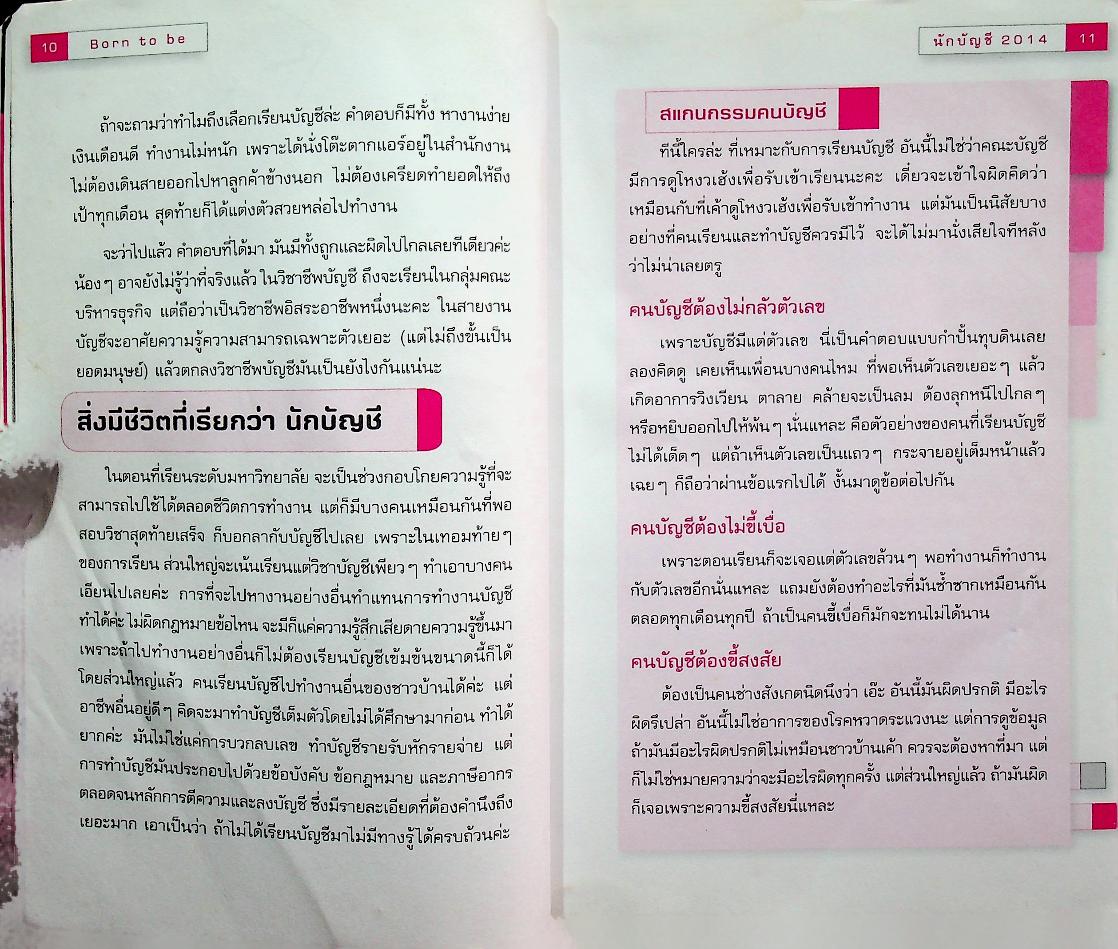 10 Born to be
ถ้าจะถามว่าทำไมถึงเลือกเรียนบัญชีล่ะ คำตอบก็มีทั้ง หางานง่าย
เงินเดือนดี ทำงานไม่หนัก เพราะได้นั่งโต๊ะตากแอร์อยู่ในสำนักงาน
ไม่ต้องเดินสายออกไปหาลูกค้าข้างนอก ไม่ต้องเครียดทำยอดให้ถึง
เป้าทุกเดือน สุดท้ายก็ได้แต่งตัวสวยหล่อไปทำงาน
จะว่าไปแล้ว คำตอบที่ได้มา มันมีทั้งถูกและผิดไปไกลเลยทีเดียวค่ะ
น้องๆ อาจยังไม่รู้ว่าที่จริงแล้ว ในวิชาชีพบัญชี ถึงจะเรียนในกลุ่มคณะ
บริหารธุรกิจ แต่ถือว่าเป็นวิชาชีพอิสระอาชีพหนึ่งนะคะ ในสายงาน
บัญชีจะอาศัยความรู้ความสามารถเฉพาะตัวเยอะ (แต่ไม่ถึงขั้นเป็น
ยอดมนุษย์) แล้วตกลงวิชาชีพบัญชีมันเป็นยังไงกันแน่นะ
สิ่งมีชีวิตที่เรียกว่า นักบัญชี
ในตอนที่เรียนระดับมหาวิทยาลัย จะเป็นช่วงกอบโกยความรู้ที่จะ
สามารถไปใช้ได้ตลอดชีวิตการทำงาน แต่ก็มีบางคนเหมือนกันที่พอ
สอบวิชาสุดท้ายเสร็จ ก็บอกลากับบัญชีไปเลย เพราะในเทอมท้ายๆ
ของการเรียน ส่วนใหญ่จะเน้นเรียนแต่วิชาบัญชีเพียวๆ ทำเอาบางคน
เอียนไปเลยค่ะ การที่จะไปหางานอย่างอื่นทำแทนการทำงานบัญชี
ทำได้ค่ะ ไม่ผิดกฎหมายข้อไหน จะมีก็แค่ความรู้สึกเสียดายความรู้ขึ้นมา
เพราะถ้าไปทำงานอย่างอื่นก็ไม่ต้องเรียนบัญชีเข้มข้นขนาดนี้ก็ได้
โดยส่วนใหญ่แล้ว คนเรียนบัญชีไปทำงานอื่นของชาวบ้านได้ค่ะ แต่
อาชีพอื่นอยู่ดีๆ คิดจะมาทำบัญชีเต็มตัวโดยไม่ได้ศึกษามาก่อน ทำได้
ยากค่ะ มันไม่ใช่แค่การบวกลบเลข ทำบัญชีรายรับหักรายจ่าย แต่
การทำบัญชีมันประกอบไปด้วยข้อบังคับ ข้อกฎหมาย และภาษีอากร
ตลอดจนหลักการตีความและลงบัญชี ซึ่งมีรายละเอียดที่ต้องคำนึงถึง
เยอะมาก เอาเป็นว่า ถ้าไม่ได้เรียนบัญชีมาไม่มีทางรู้ได้ครบถ้วนค่ะ
นักบัญชี 2014 11
สแกนกรรมคนบัญชี
ทีนี้ใครล่ะ ที่เหมาะกับการเรียนบัญชี อันนี้ไม่ใช่ว่าคณะบัญชี
มีการดูโหงวเฮ้งเพื่อรับเข้าเรียนนะคะ เดี๋ยวจะเข้าใจผิดคิดว่า
เหมือนกับที่เค้าดูโหงวเฮ้งเพื่อรับเข้าทำงาน แต่มันเป็นนิสัยบาง
อย่างที่คนเรียนและทำบัญชีควรมีไว้ จะได้ไม่มานั่งเสียใจทีหลัง
ว่าไม่น่าเลยตรู
คนบัญชีต้องไม่กลัวตัวเลข
เพราะบัญชีมีแต่ตัวเลข นี่เป็นคำตอบแบบกำปั้นทุบดินเลย
ลองคิดดู เคยเห็นเพื่อนบางคนไหม ที่พอเห็นตัวเลขเยอะๆ แล้ว
เกิดอาการวิงเวียน ตาลาย คล้ายจะเป็นลม ต้องลุกหนีไปไกลๆ
หรือหยิบออกไปให้พ้นๆ นั่นแหละ คือตัวอย่างของคนที่เรียนบัญชี
ไม่ได้เด็ดๆ แต่ถ้าเห็นตัวเลขเป็นแถวๆ กระจายอยู่เต็มหน้าแล้ว
เฉยๆ ก็ถือว่าผ่านข้อแรกไปได้ งั้นมาดูข้อต่อไปกัน
คนบัญชีต้องไม่ขี้เบื่อ
เพราะตอนเรียนก็จะเจอแต่ตัวเลขล้วนๆ พอทำงานก็ทำงาน
กับตัวเลขอีกนั่นแหละ แถมยังต้องทำอะไรที่มันซ้ำซากเหมือนกัน
ตลอดทุกเดือนทุกปี ถ้าเป็นคนขี้เบื่อก็มักจะทนไม่ได้นาน
คนบัญชีต้องขี้สงสัย
ต้องเป็นคนช่างสังเกตนิดนึงว่า เอ๊ะ อันนี้มันผิดปรกติ มีอะไร
ผิดรึเปล่า อันนี้ไม่ใช่อาการของโรคหวาดระแวงนะ แต่การดูข้อมูล
ถ้ามันมีอะไรผิดปรกติไม่เหมือนชาวบ้านเค้า ควรจะต้องหาที่มา แต่
ก็ไม่ใช่หมายความว่าจะมีอะไรผิดทุกครั้ง แต่ส่วนใหญ่แล้ว ถ้ามันผิด
ก็เจอเพราะความขี้สงสัยนี่แหละ